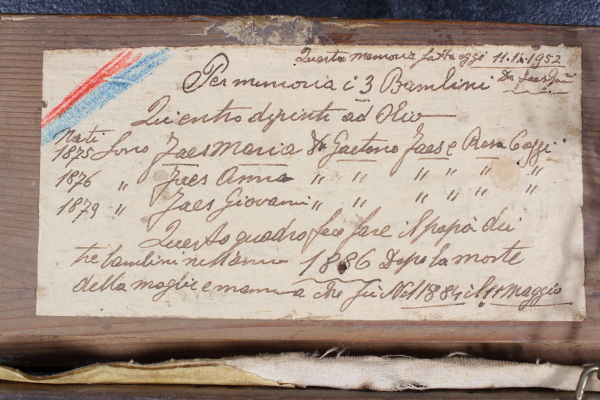 Questa memoria fatta oggi 11.11.1952
Per memoria i 3 Bambini Da Jaes
Qui entro dipinti ad Olio
Nati
1875 Sono Jaes Maria Da Gaetano Jaes e Rosa Coggi
1876 " Jaes Anna " " " " " "
1879 " Jaes Giovanni " " " " " "
Questo quadro fece fare il papà dei
tre bambini nell'anno 1886 Dopo la morte
della moglie e mamma che fu Nel 1884 il 11 Maggio